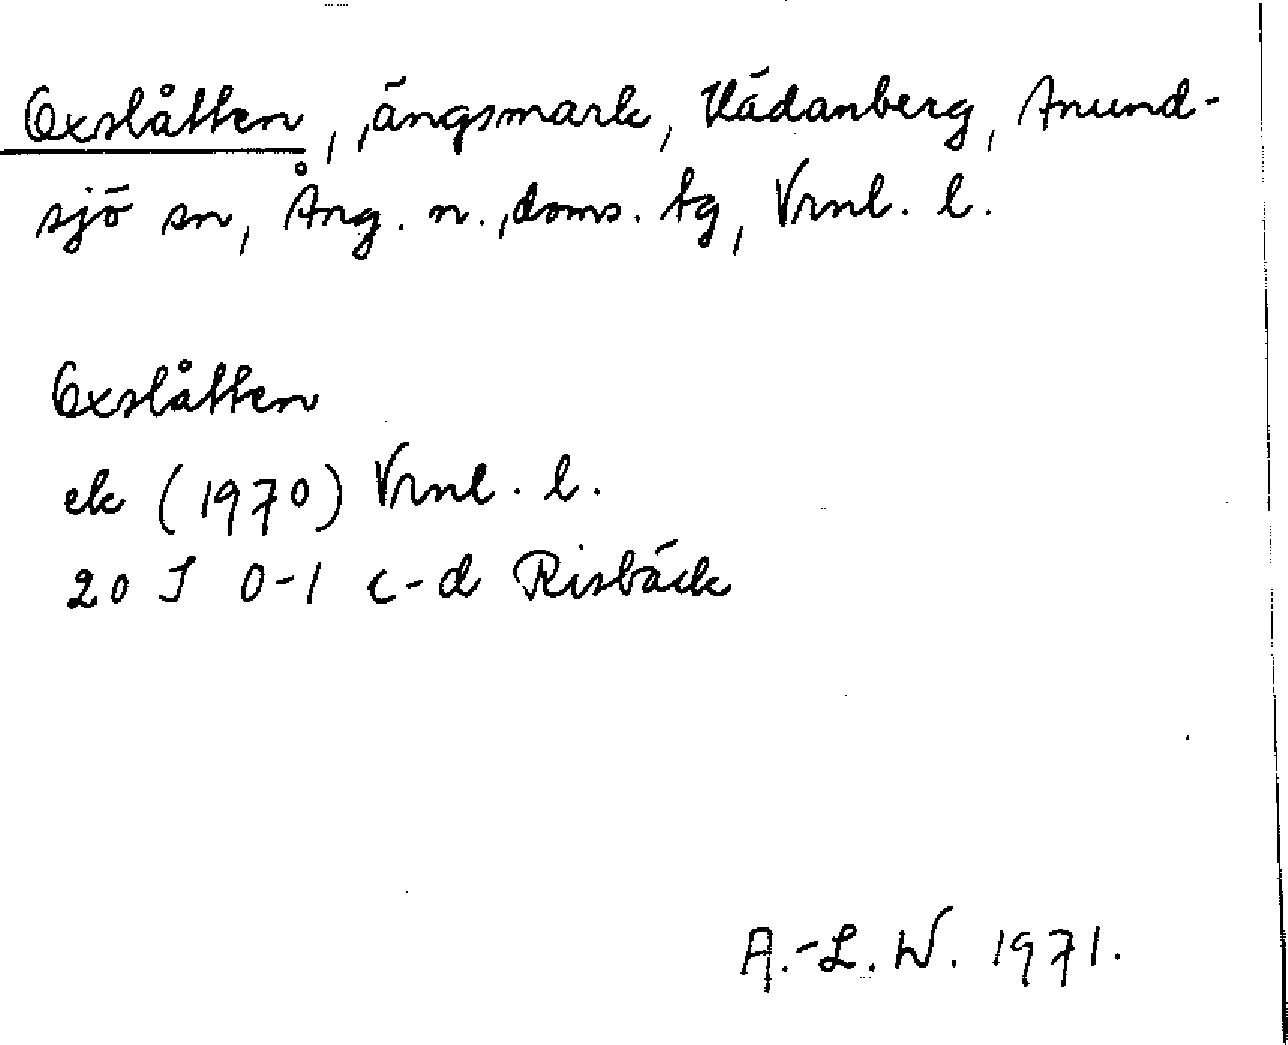 Oxslåtten, ängsmark, Vädanberg, Anund-
sjö sn, Ång. n. doms. tg, Vrnl. l.
Oxslåtten
ek (1970) Vrnl. l.
20 J 0-1 c-d Risbäck
A.-L. W. 1971.